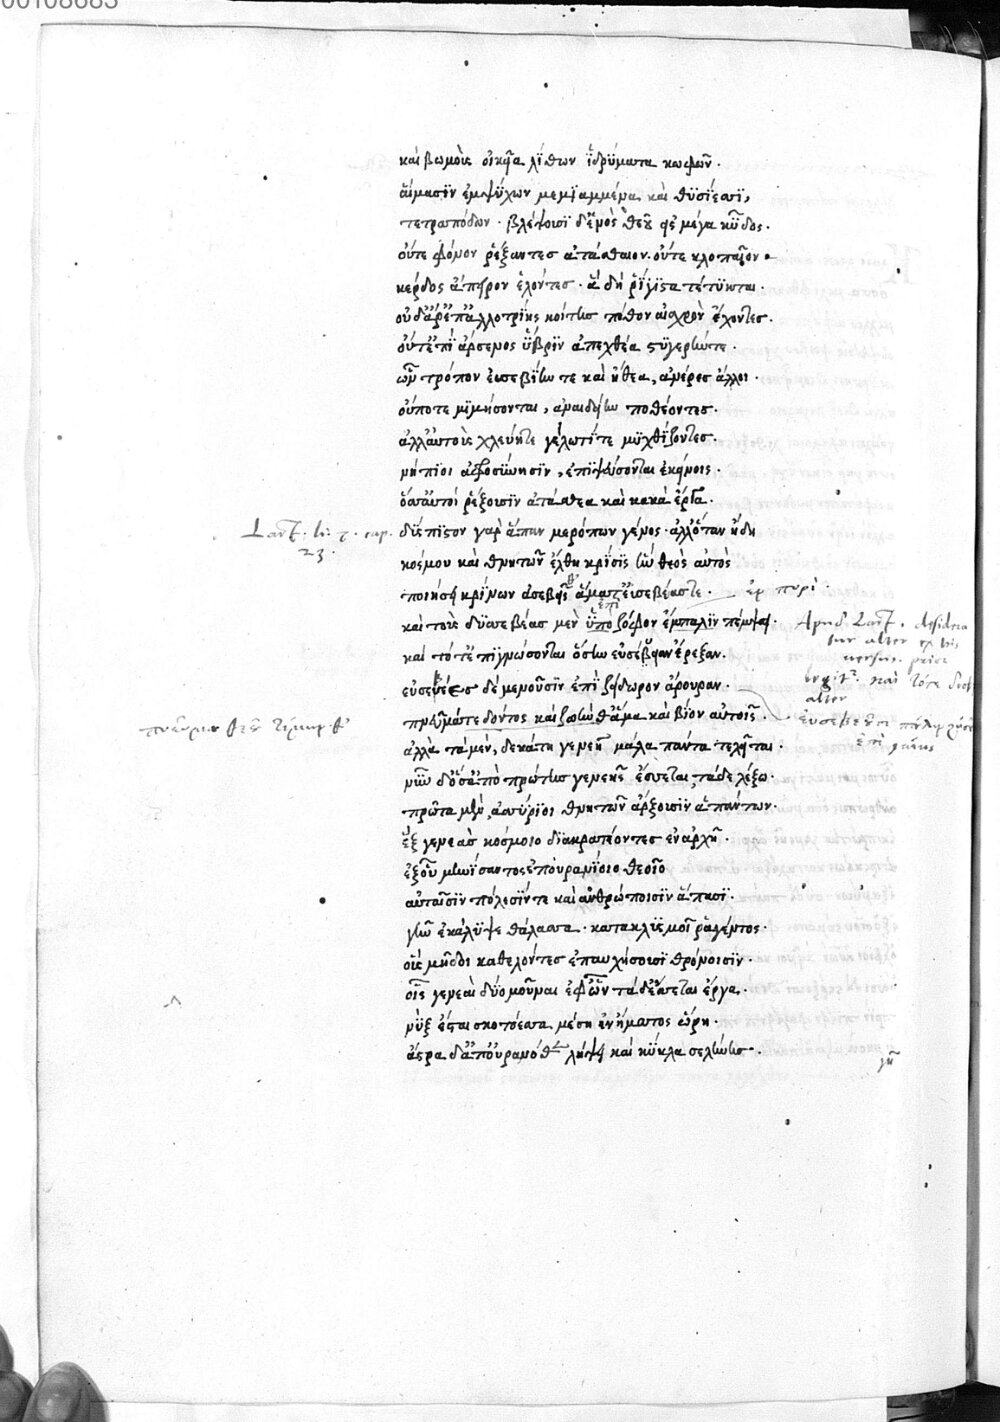 00108683
καὶ βωμοὺς εἰκαῖα λίθων ἱδρύματα κωφῶν.
αἵμασϊν ἐμψύχων μεμϊαμμένα καὶ θϋσίεσσϊ,
τετραπόδων. βλέψουσϊ δ' ἑνὸς θεοῦ ἐς μέγα κῦδος.
οὔτε φόνον ῥέξαντες ἀτάσθαλον. οὔτε κλοπαῖον
κέρδος ἀπειρον ἑλόντες. ἃ δὴ ῥίγϊστα τέτϋκται.
οὐδ' ἄρ' ἐπ' ἀλλοτρίης κοίτης πόθον αἰσχρὸν ἔχοντες.
οὔτ' ἐπΐ ἄρσενος ὕβρϊν ἀπεχθέα στϋγερήν τε.
ὧν τρόπον εὐσεβΐην τε καὶ ἤθεα, ἀνέρες ἄλλοι.
οὔποτε μϊμήσονται, ἀναιδείην ποθέοντες.
ἀλλ' αὐτοὺς χλεύῃ τε γέλωτί τε μϋχθΐζοντες.
νήπϊοι ἀφροσύνῃσϊν, ἐπϊψεύσονται ἐκείνοις.
ὅσσ' αὐτοὶ ῥέξουσϊν ἀτάσθαλα καὶ κακὰ ἔργα.
Lact. li. 7. cap. 23.
δύσπϊστον γὰρ ἅπαν μερόπων γένος. ἀλλ' ὅταν ἤδη
κόσμου καὶ θνητῶν ἔλθῃ κρΐσϊς ἣν θεὸς αὐτὸς
ποιήσει κρΐνων ἀσεβεῖς θ' ἅμα τ' εὐσεβέας τε. ἐν πυρὶ.
καὶ τοὺς δϋσσεβέας μὲν ὑπὸ ζόφον ἔμπαλϊν πέμψει. ἐπὶ
Apud Lact. desidera
tur alter ex his
versus. prior
legit. καὶ τότε
alter
καὶ τότ' ἐπϊγνώσονται ὅσην εὐσέβειαν ἔρεξαν.
εὐσεβέες δὲ μενοῦσϊν ἐπΐ ζείδωρον ἄρουραν.
πνεῦμα τε δόντος καὶ ζωὴν θ' ἅμα καὶ βίον αὐτοῖς.
ἀλλὰ τὰ μὲν, δεκάτῃ γενεῇ μάλα πάντα τελεῖται.
νῦν δ' ὅσ' ἀπὸ πρώτης γενεῆς ἔσσεται, τάδε λέξω.
πρῶτα μὲν, ἀσσύριοι θνητῶν ἄρξουσϊν ἁπάντων.
ἓξ γενεὰς κόσμοιο δϊακρατέοντες ἐν ἀρχῇ.
ἐξ οὗ μηνίσαντος ἐπουρανΐοιο θεοῖο
αὐταῖσϊν πόλεσΐν τε καὶ ἀνθρώποισϊν ἅπασϊ.
γῆν ἐκάλϋψε θάλασσα. κατακλϋσμοῖο ῥαγέντος.
οὓς μῆδοι καθελόντες ἐπαυχήσουσϊ θρόνοισϊν.
οἷς γενεαὶ δύο μοῦναι ἐφ' ὧν τάδε ἔσσεται ἔργα.
νὺξ ἔσται σκοτόεσσα μέσῃ ἐνὶ ἤματος ὥρῃ.
ἄστρα δ' ἀπ' οὐρανόθεν λείψει καὶ κΰκλα σελήνης.
γῆ